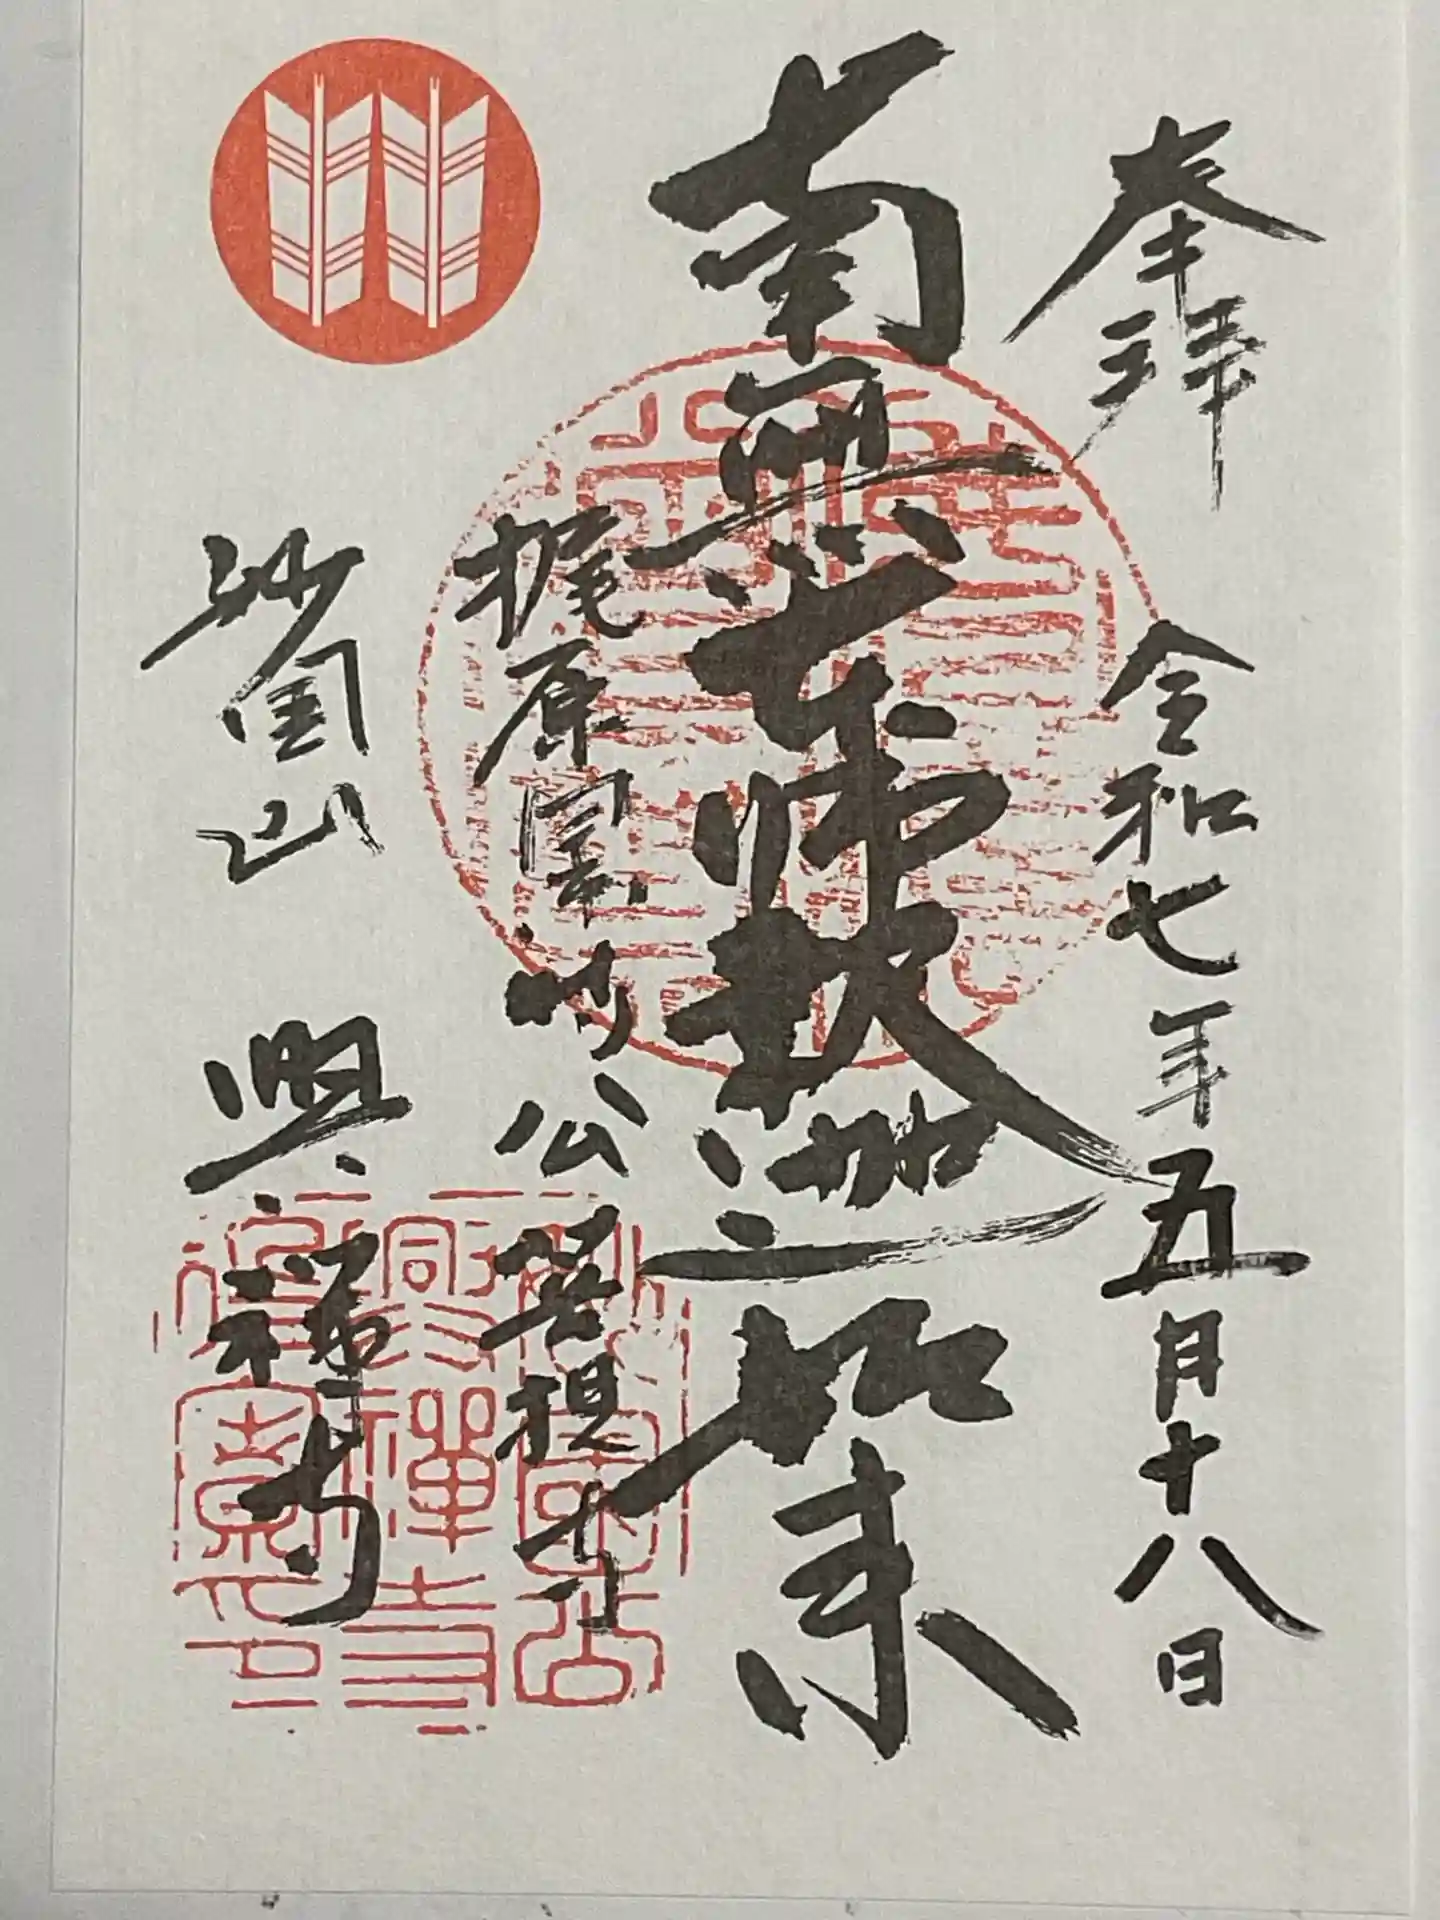 奉拝 令和七年五月十八日
南無本師釈迦如来
梶原景時公菩提寺
妙国山 興禅寺